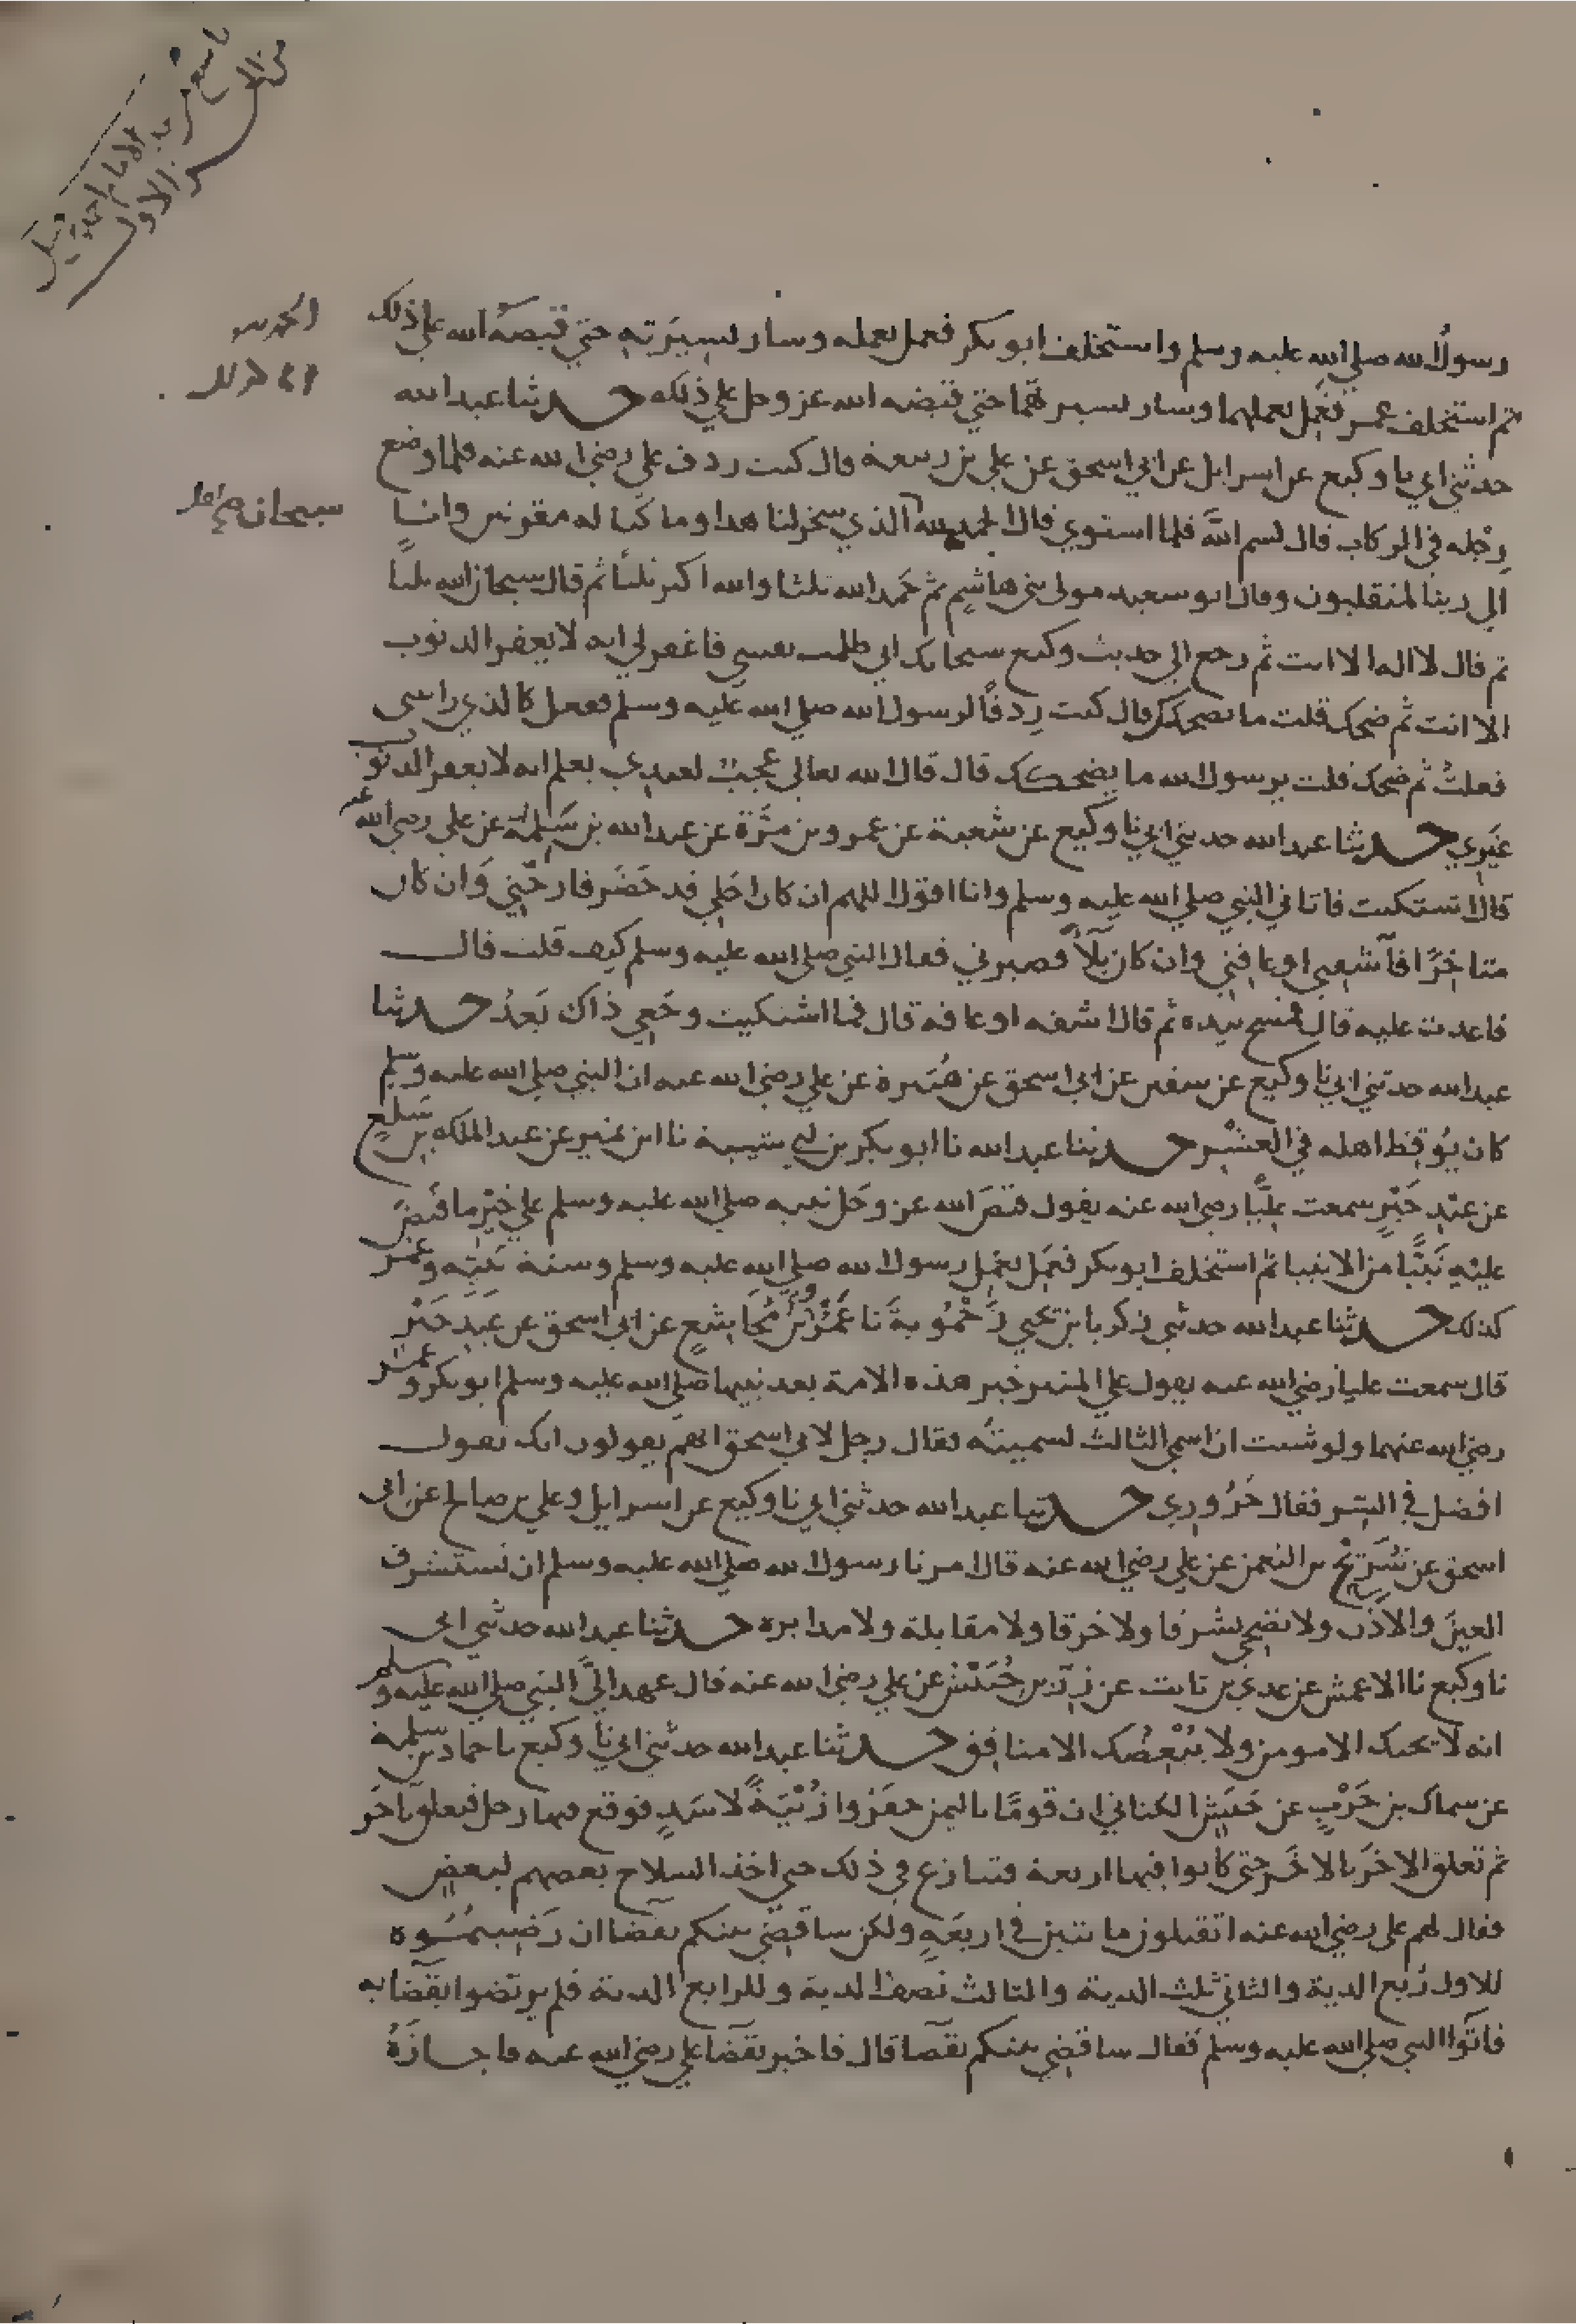 تاسع من حديث الامام احمد بن حنبل
الاول
رسول الله صلى الله عليه وسلم واستخلف ابو بكر فعمل بعمله وسار بسيرته حتى قبضه الله على ذلك
ثم استخلف عمر فعمل بعملهما وسار بسيرتهما حتى قبضه الله عز وجل على ذلك حدثنا عبد الله
حدثني ابي نا وكيع عن اسرايل عن ابي اسحق عن علي بن ربيعة قال كنت ردف علي رضي الله عنه فلما وضع
رجله في الركاب قال بسم الله فلما استوي قال الحمد لله الذي سخر لنا هذا وما كنا له مقرنين وانا
سبحان
الي ربنا لمنقلبون وقال ابو سعيد مولى بني هاشم ثم حمد الله ثلثا والله اكبر ثلثا ثم قال سبحان الله ثلثا
ثم قال لا اله الا انت ثم رجع الي حديث وكيع سبحانك اني ظلمت نفسي فاغفر لي انه لا يغفر الذنوب
الا انت ثم ضحك قلت ما يضحكك قال كنت ردفا لرسول الله صلي الله عليه وسلم ففعل كالذي رايتني
فعلت ثم ضحك قلت يرسول الله ما يضحكك قال قال الله تعالي عجبت لعبدي يعلم انه لا يغفر الذنوب
غيري حدثنا عبد الله حدثني ابي نا وكيع عن شعبة عن عمرو بن مرة عن عبد الله بن سلمة عن علي رضي الله عنه
قال اشتكيت فاتاني النبي صلي الله عليه وسلم وانا اقول اللهم ان كان اجلي قد حضر فارحني وان كان
متاخرا فاشفني او عافني وان كان بلآ فصبرني فقال النبي صلي الله عليه وسلم كيف قلت قال
فاعدت عليه قال فمسح بيده ثم قال اشفه او عافه قال فما اشتكيت وجعي ذاك بعد حدثنا
عبد الله حدثني ابي نا وكيع عن سفين عن ابي اسحق عن هبيرة عن علي رضي الله عنه ان النبي صلي الله عليه وسلم
كان يوقظ اهله في العشر حدثنا عبد الله نا ابو بكر بن ابي شيبة نا ابن نمير عن عبد الملك بن سلع
عن عبد خير سمعت عليا رضي الله عنه يقول قبض الله عز وجل نبيه صلي الله عليه وسلم علي خير ما قبض
عليه نبيا من الانبيا ثم استخلف ابو بكر فعمل بعمل رسول الله صلي الله عليه وسلم وسنة نبيه وعمر
كذلك حدثنا عبد الله حدثني زكريا بن يحيي زحمويه نا عمر بن مجاشع عن ابي اسحق عن عبد خير
قال سمعت عليا رضي الله عنه يقول علي المنبر خير هذه الامة بعد نبيها صلي الله عليه وسلم ابو بكر وعمر
رضي الله عنهما ولو شئت ان اسمي الثالث لسميته فقال رجل لابي اسحق انهم يقولون انك تقول
افضل في الشر فقال حروري حدثنا عبد الله حدثني ابي نا وكيع عن اسرايل وعلي بن صالح عن ابي
اسحق عن شريح بن النعمن عن علي رضي الله عنه قال امرنا رسول الله صلي الله عليه وسلم ان نستشرف
العين والاذن ولا نضحي بشرقا ولا خرقا ولا مقابلة ولا مدابره حدثنا عبد الله حدثني ابي
نا وكيع نا الاعمش عن عدي بن ثابت عن زر بن حبيش عن علي رضي الله عنه قال عهد الي النبي صلي الله عليه وسلم
انه لا يحبك الا مومن ولا يبغضك الا منافق حدثنا عبد الله حدثني ابي نا وكيع نا حماد بن سلمة
عن سماك بن حرب عن حنش الكناني ان قوما باليمن حفروا زبية لاسد فوقع فيها رجل فتعلق باخر
ثم تعلق الاخر بالاخر حتى كانوا فيها اربعة فتنازع في ذلك حتى اخذ السلاح بعضهم لبعض
فقال لهم علي رضي الله عنه اتقتلون مايتين في اربعة ولكن ساقضي بينكم بقضا ان رضيتموه
للاول ربع الدية والثاني ثلث الدية والثالث نصف الدية وللرابع الدية فلم يرتضوا بقضايه
فاتوا النبي صلي الله عليه وسلم فقال ساقضي بينكم بقضا قال فاخبر بقضا علي رضي الله عنه فاجازه